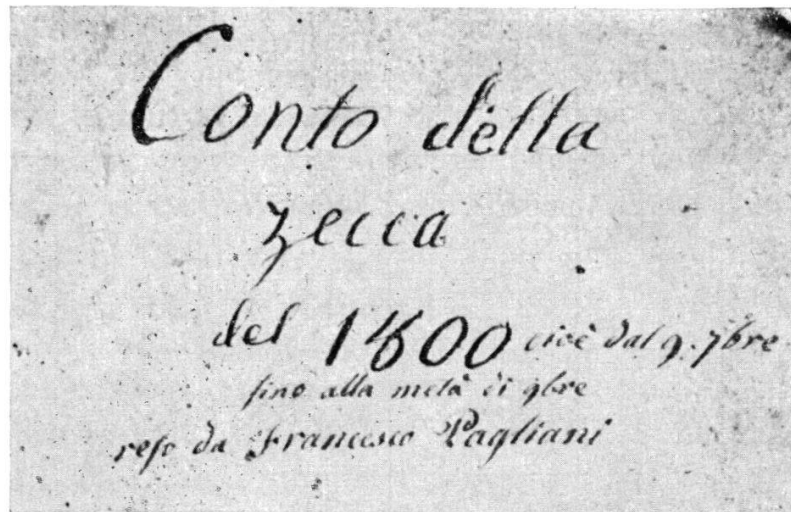 Conto della
zecca
del 1800 cioè dal 9. 7bre
fino alla metà di 9bre
reso da Francesco Pagliani